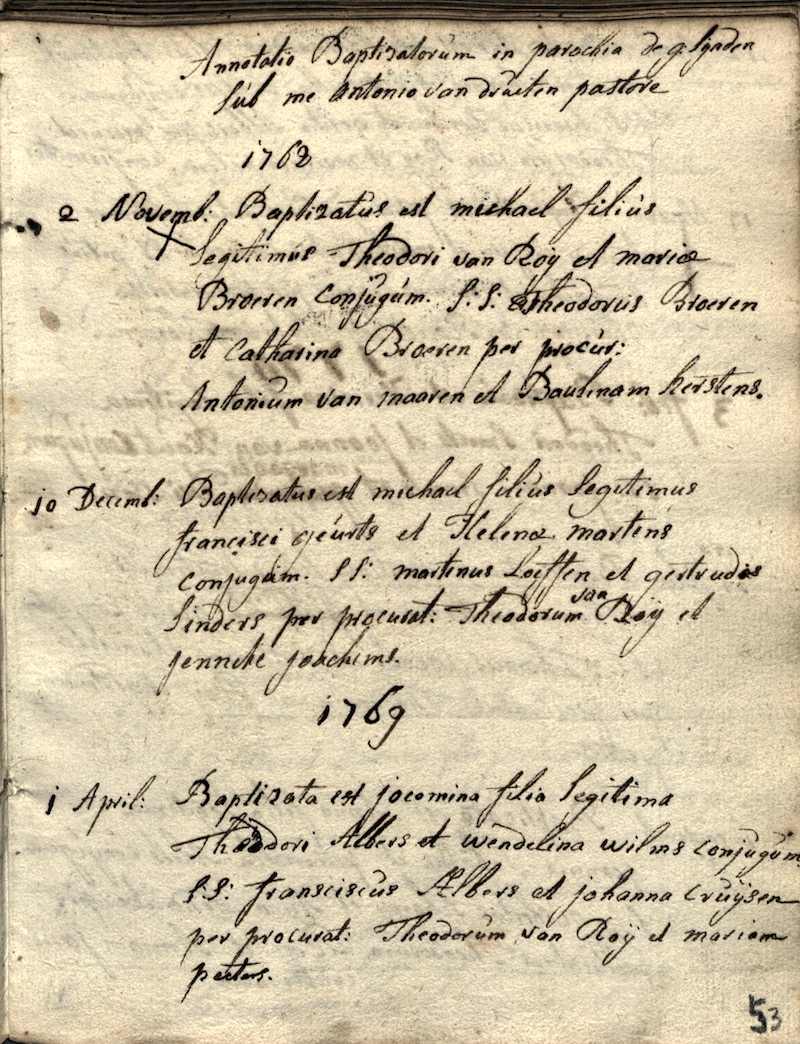 Annotatio Baptizatorum in parochia de g. Lynden
sub me Antonio van druten pastore
1768
2 Novemb: Baptizatus est michael filius
legitimus Theodori van Roÿ et mariæ
Broeren conjugum. S:S: Theodorus Broeren
et Catharina Broeren per procur:
Antonium van maaren et Paulinam kerstens.
10 Decemb: Baptizatus est michael filius legitimus
francisci geurts et Helenæ martens
conjugum. SS: martinus Loeffen et gertrudis
Sinders per procurat: Theodorum van Roÿ et
jenneke joachims.
1769
1 April: Baptizata est jacomina filia legitima
Theodori Albers et wendelina wilms conjugum
S:S: fransciscus Albers et johanna cruÿsen
per procurat: Theodorum van Roÿ et mariam
peeters.
53